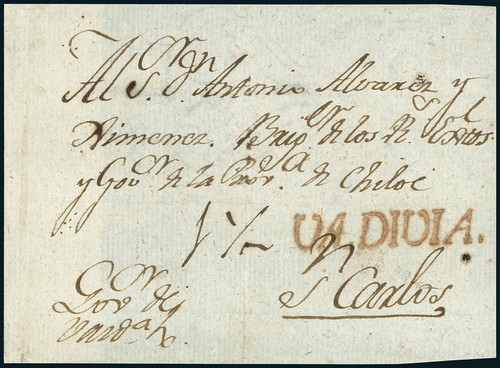 Al S.ºʳ Dⁿ Antonio Alvarez y
Ximenez. Brigᵉʳ de los Rˢ Extos.
y Govʳ de la Provᵃ de Chiloe
VALDIVIA.
Sⁿ Carlos
Govʳ de